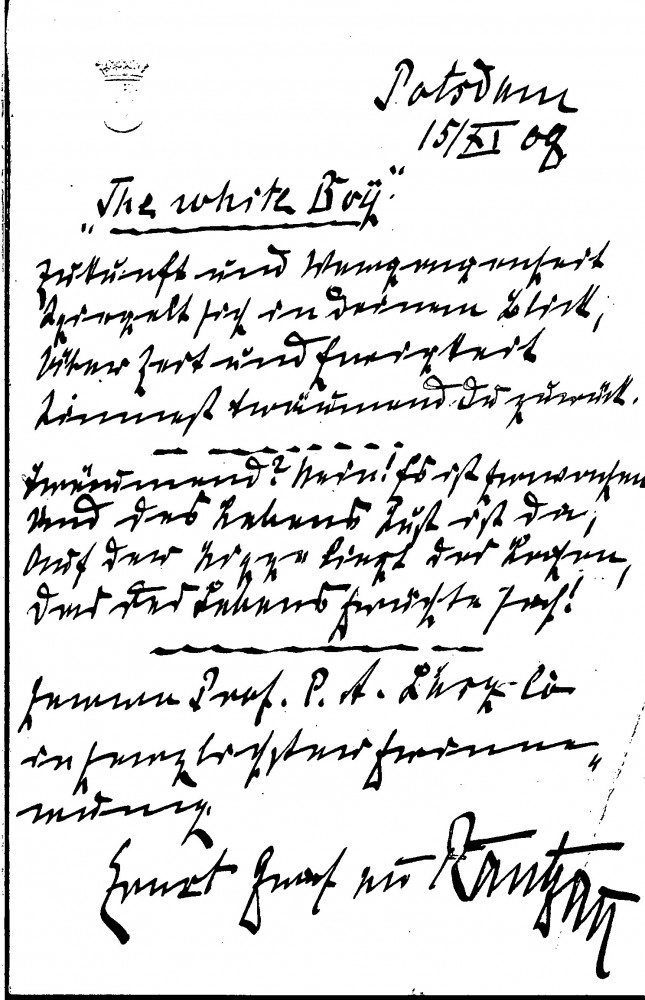 Potsdam
15/XI 08
„The white Boÿ."
Zukunft und Vergangenheit
Spiegelt sich in deinem Blick,
Über Zeit und Ewigkeit
Sinnest träumend Du zurück.
Träumend? Nein! Es ist Erwachen
Und des Lebens Lust ist da,
Auf der Lippe liegt das Lachen,
Das des Lebens Früchte sah!
Herrn Prof. P. A.
in herzlichster Erinne„
rung.
Ernst Graf zu Rantzau